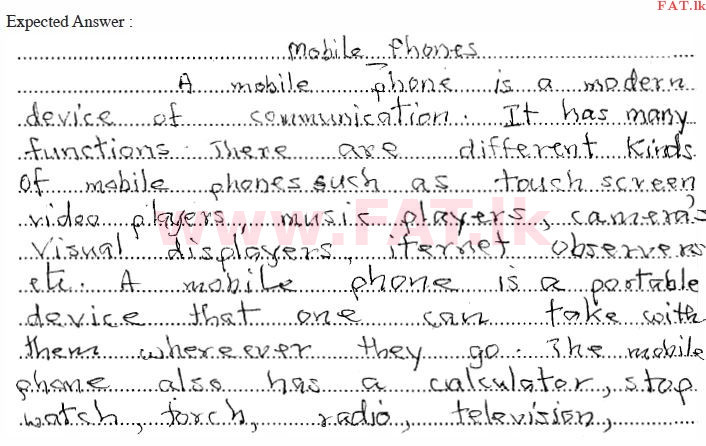 FAT.lk
Expected Answer :
Mobile Phones
A mobile phone is a modern
device of communication. It has many
functions. There are different kinds
of mobile phones such as touch screen
video players, music players, camera's
visual displayers, iternet observers
etc. A mobile phone is a portable
device that one can take with
them whereever they go. The mobile
phone also has a calculator, stop
watch, torch, radio, television,
www.FAT.lk